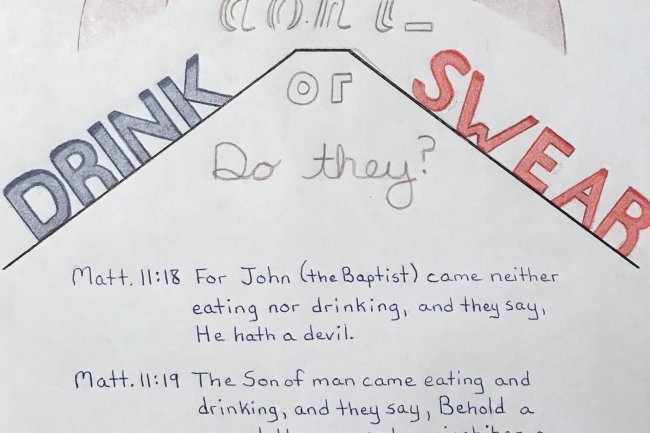 DRINK
SWEAR
or
Do they?
Matt. 11:18 For John (the Baptist) came neither
eating nor drinking, and they say,
He hath a devil.
Matt. 11:19 The Son of man came eating and
drinking, and they say, Behold a